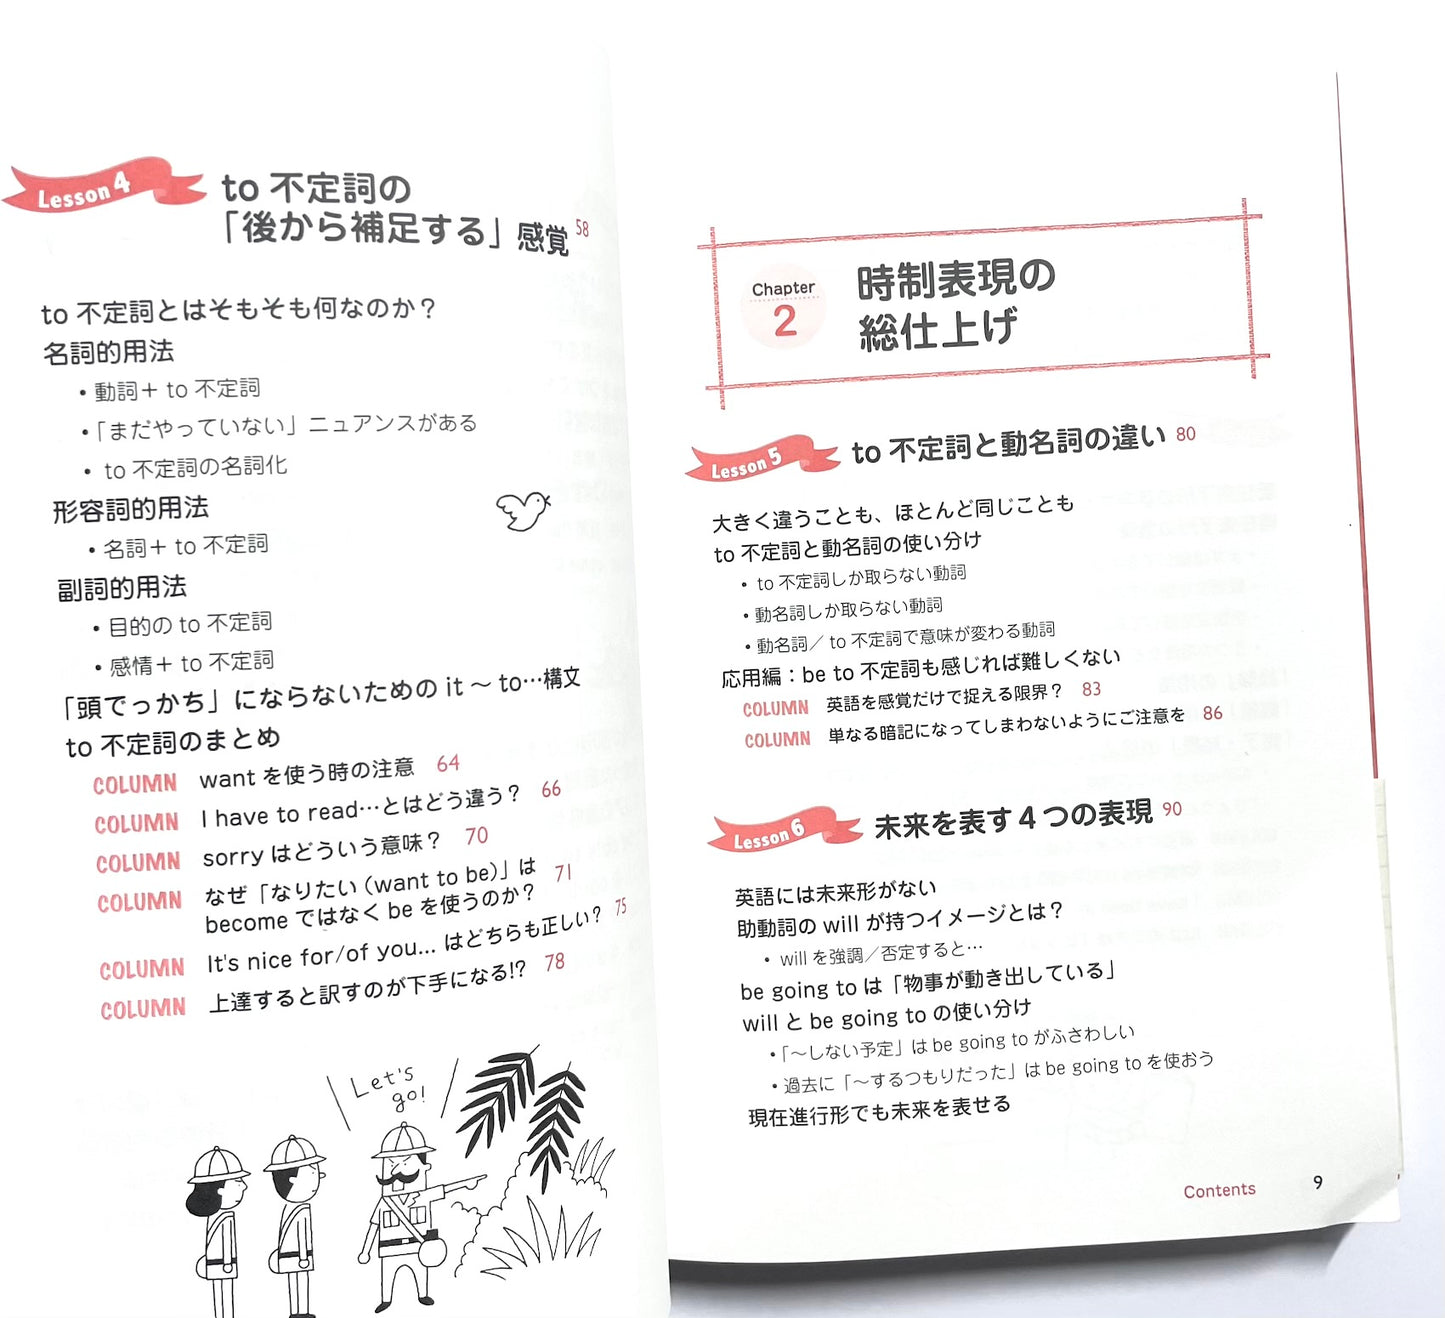 Lesson 4
to 不定詞の
「後から補足する」感覚 58
to 不定詞とはそもそも何なのか？
名詞的用法
・動詞＋ to 不定詞
・「まだやっていない」ニュアンスがある
・ to 不定詞の名詞化
形容詞的用法
・名詞＋ to 不定詞
副詞的用法
・目的の to 不定詞
・感情＋ to 不定詞
「頭でっかち」にならないための it ～ to…構文
to 不定詞のまとめ
COLUMN want を使う時の注意 64
COLUMN I have to read…とはどう違う？ 66
COLUMN sorry はどういう意味？ 70
COLUMN なぜ「なりたい（want to be）」は
become ではなく be を使うのか？ 71
COLUMN It's nice for/of you... はどちらも正しい？ 75
COLUMN 上達すると訳すのが下手になる!? 78
Let's
go!
Chapter
2
時制表現の
総仕上げ
Lesson 5
to 不定詞と動名詞の違い 80
大きく違うことも、ほとんど同じことも
to 不定詞と動名詞の使い分け
・ to 不定詞しか取らない動詞
・動名詞しか取らない動詞
・動名詞／ to 不定詞で意味が変わる動詞
応用編：be to 不定詞も感じれば難しくない
COLUMN 英語を感覚だけで捉える限界？ 83
COLUMN 単なる暗記になってしまわないようにご注意を 86
Lesson 6
未来を表す４つの表現 90
英語には未来形がない
助動詞の will が持つイメージとは？
・ will を強調／否定すると…
be going to は「物事が動き出している」
will と be going to の使い分け
・「～しない予定」は be going to がふさわしい
・過去に「～するつもりだった」は be going to を使おう
現在進行形でも未来を表せる
Contents 9